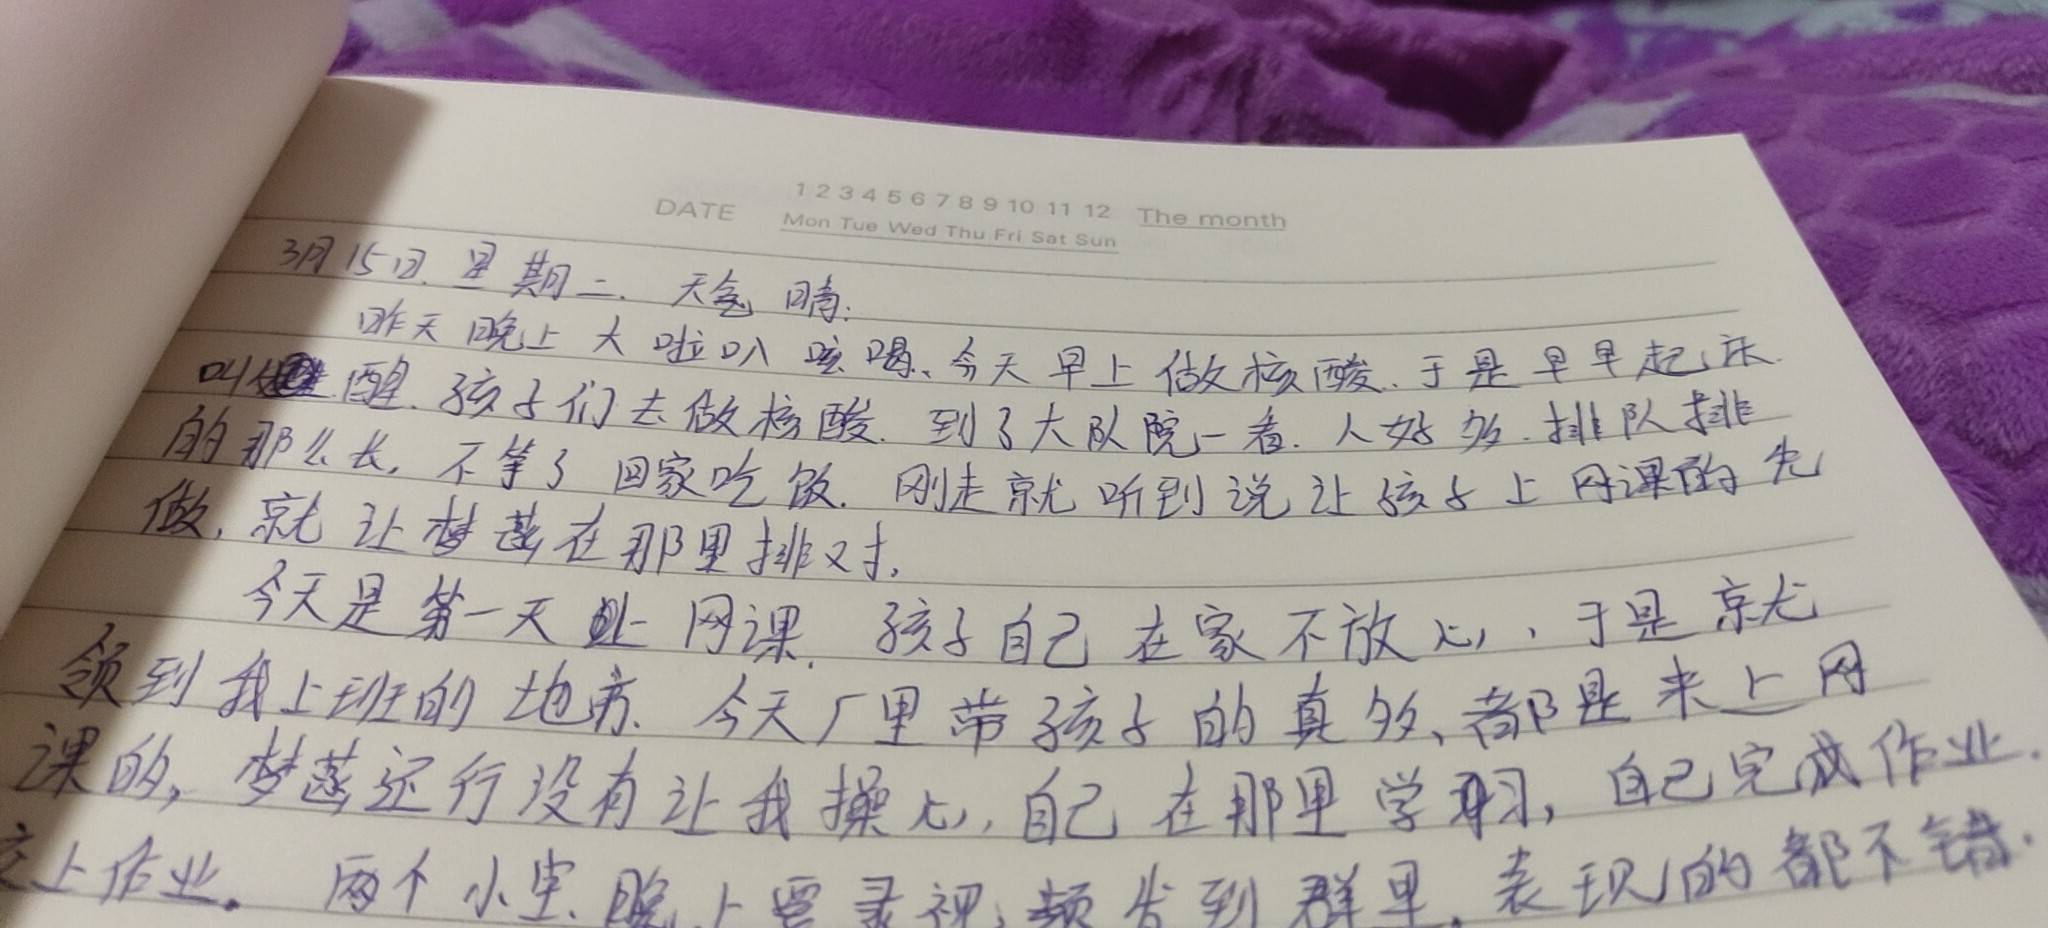 DATE 1 2 3 4 5 6 7 8 9 10 11 12 The month
Mon Tue Wed Thu Fri Sat Sun
3月15日. 星期二. 天气 晴.
昨天晚上大啦叭 喝、今天早上做核酸. 于是早早起床.
叫醒. 孩子们去做核酸. 到了大队院一看. 人好多. 排队排
的那么长, 不等了回家吃饭. 刚走就听到说让孩子上网课的先
做, 就让梦 在那里排对.
今天是第一天上网课. 孩子自己在家不放心, 于是就
领到我上班的地方. 今天厂里带孩子的真多, 都是来上网
课的, 梦 还行没有让我操心, 自己在那里学习, 自己完成作业.
交上作业. 两个小 晚上要录视频发到群里. 表现的都不错.